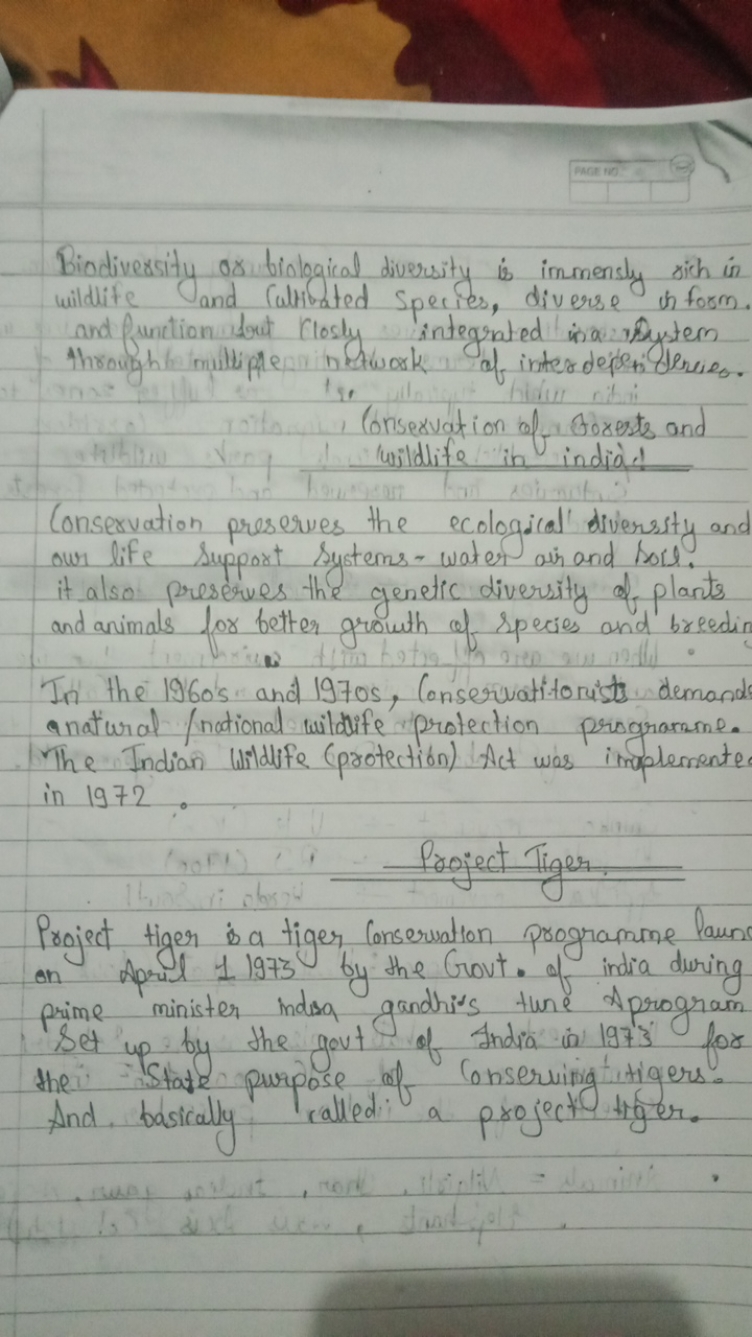 PAGE NO.
Biodiversity or biological diversity is immensly rich in
wildlife and Cultibated Species, diverse in form.
and function but Closly integrated in a System
through multiple network of interdependencies.
Conservation of Forests and
wildlife in india!
Conservation preserves the ecological diversity and
our life support systems - water air and soil.
it also preserves the genetic diversity of plants
and animals for better growth of species and breedin
In the 1960s and 1970s, Conservatitorists demand
a natural /national wildlife protection programme.
The Indian Wildlife (protection) Act was implemente
in 1972.
Project Tiger.
Project tiger is a tiger Conservation programme launc
on April 1 1973 by the Govt. of india during
prime minister indra gandhi's tune A program
Set up by the govt of India in 1973 for
the State purpose of Conserving tigers.
And basically called a project tiger.